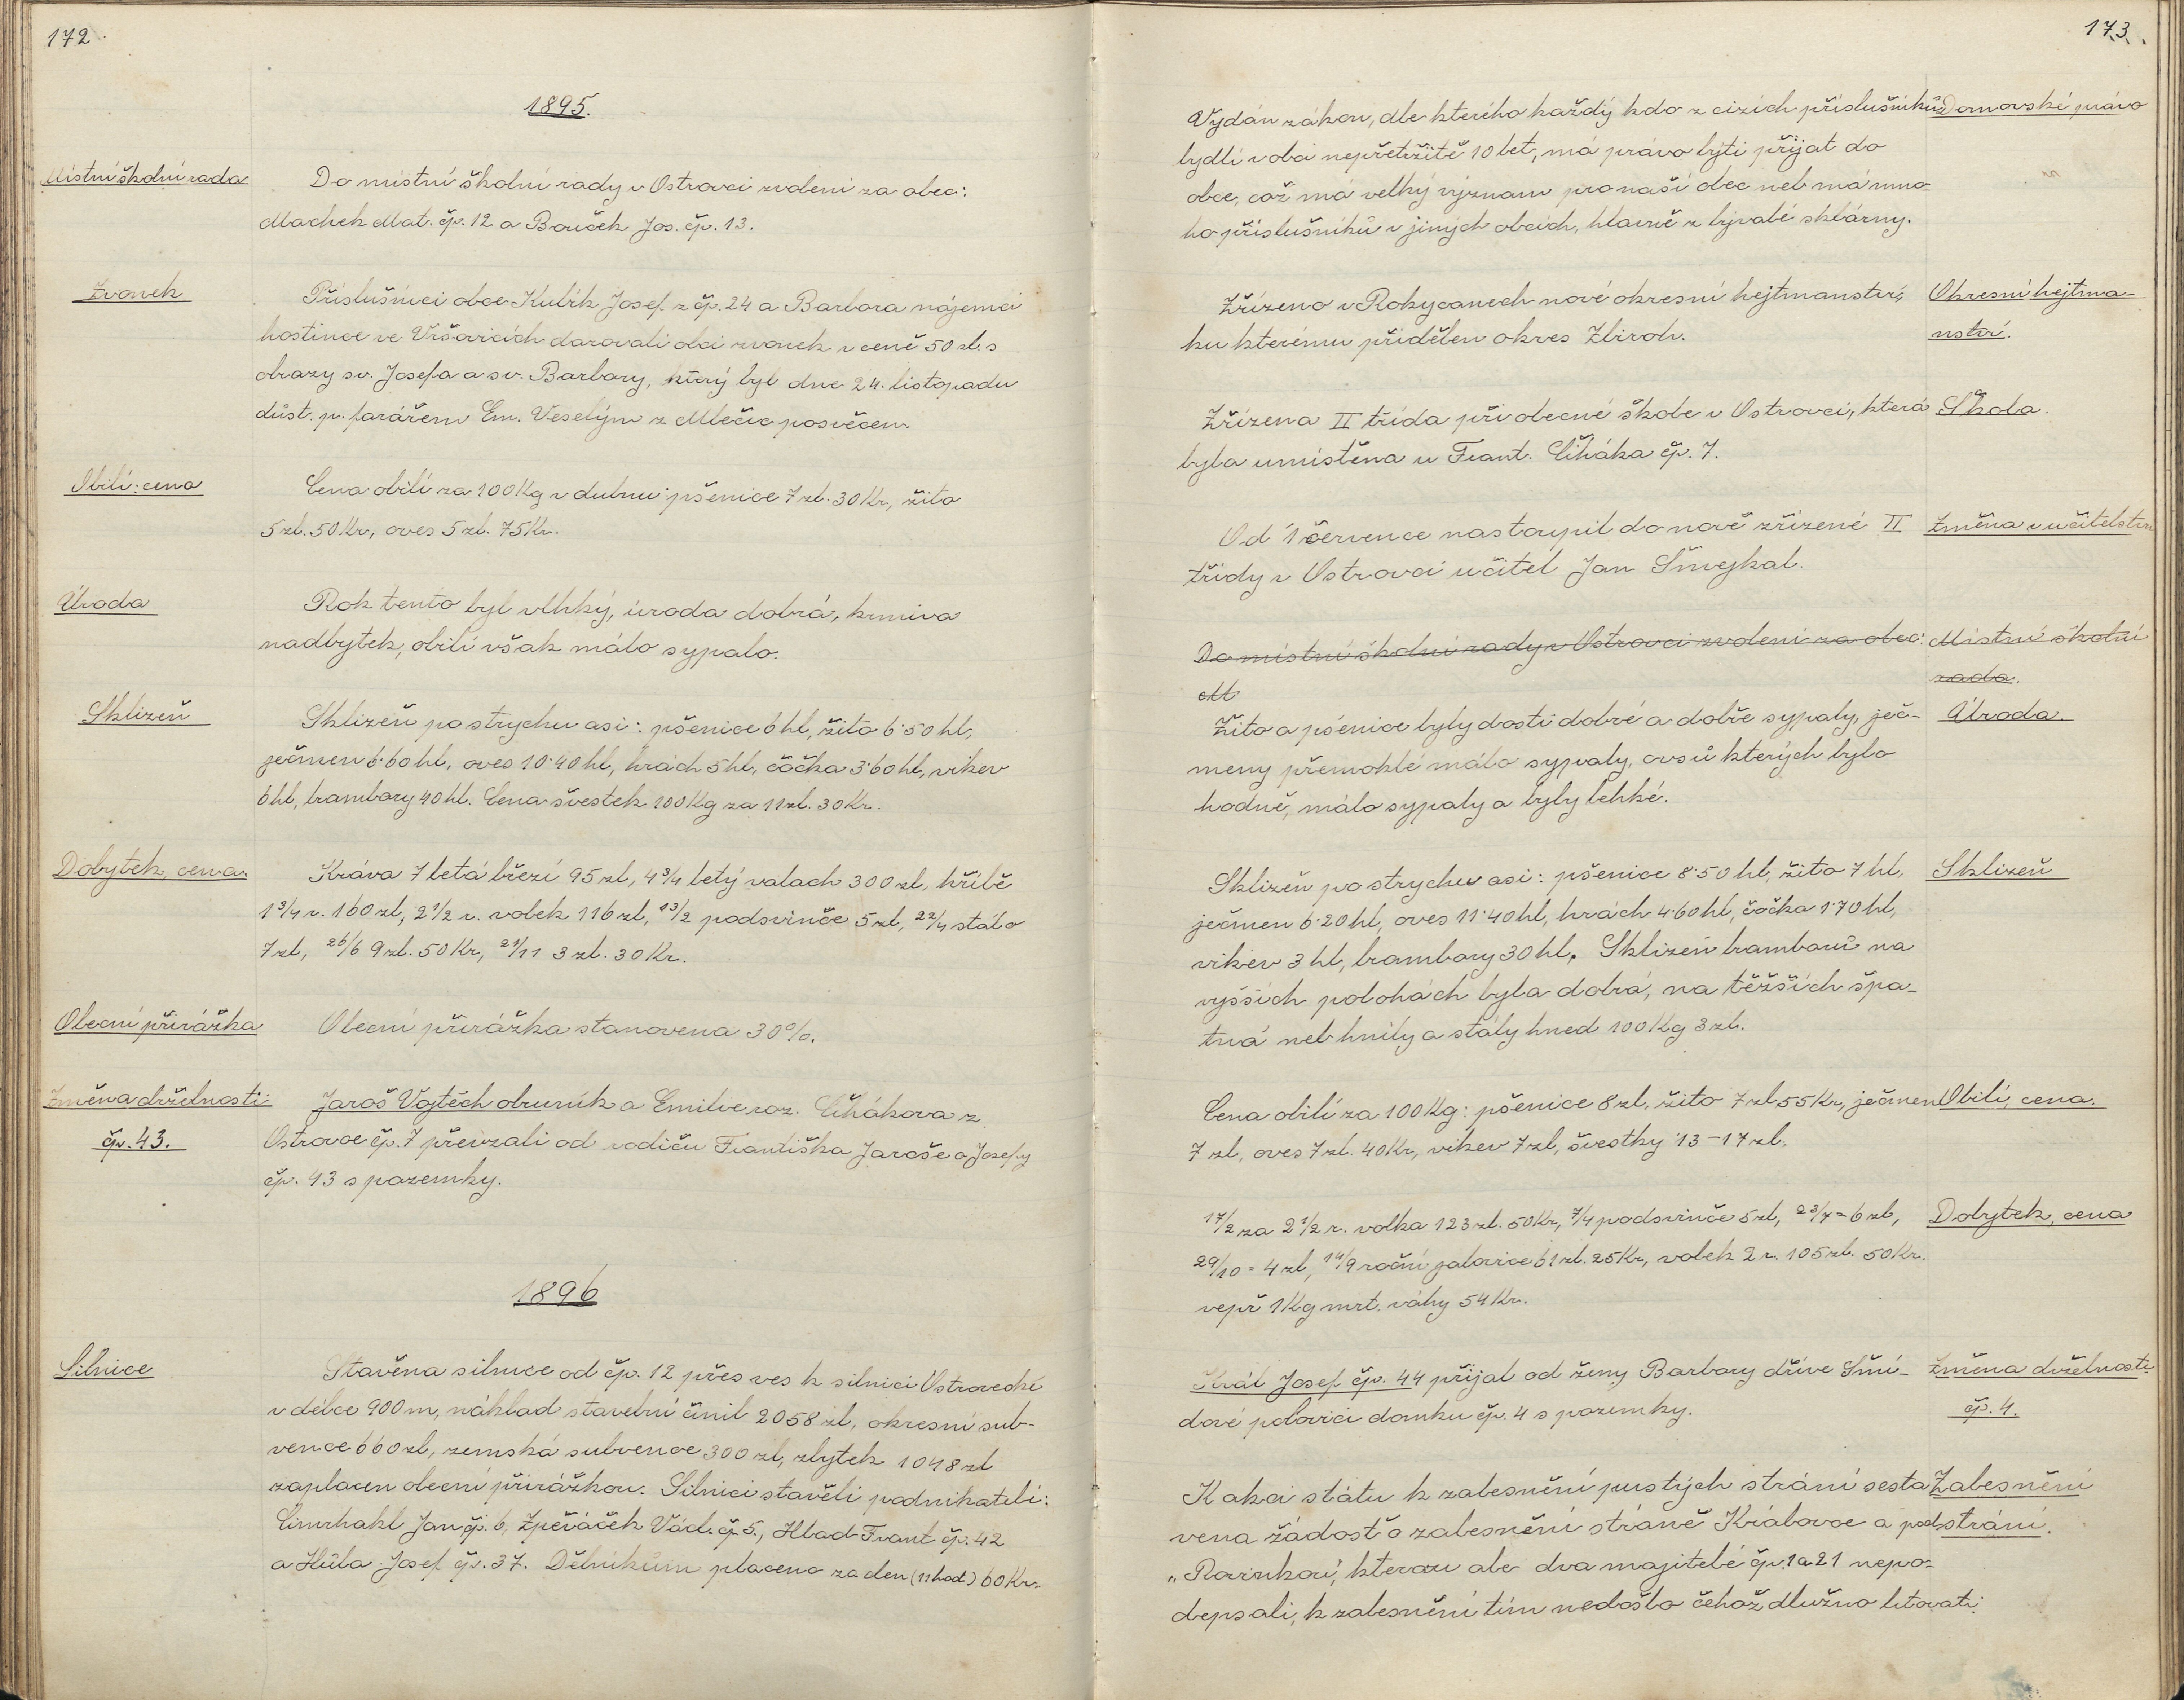 172.
1895.
Místní školní rada
Do místní školní rady v Ostrovci zvoleni za obec:
Machek Mat. čp. 12 a Bouček Jos. čp. 13.
Zvonek
Příslušníci obce Kubík Josef z čp. 24 a Barbora nájemci
hostince ve Vršovicích darovali obci zvonek v ceně 50 zl. s
obrazy sv. Josefa a sv. Barbory, který byl dne 24. listopadu
důst. p. farářem Em. Veselým z Mlečic posvěcen.
Obilí: cena
Cena obilí za 100 Kg v dubnu: pšenice 7 zl. 30 Kr, žito
5 zl. 50 Kr, oves 5 zl. 75 Kr.
Úroda
Rok tento byl vlhký, úroda dobrá, krmiva
nadbytek, obilí však málo sypalo.
Sklizeň
Sklizeň po strychu asi: pšenice 6 hl, žito 6·50 hl,
ječmen 6·60 hl, oves 10·40 hl, hrách 5 hl, čočka 3·60 hl, vikev
6 hl, brambory 40 hl. Cena švestek 100 Kg za 11 zl. 30 Kr.
Dobytek, cena.
Kráva 7 letá březí 95 zl, 4 3/4 letý valach 300 zl, hříbě
1 3/4 r. 160 zl, 2 1/2 r. volek 116 zl, 13/2 podsvinče 5 zl, 22/4 stálo
7 zl, 26/6 9 zl. 50 Kr, 21/11 3 zl. 30 Kr.
Obecní přirážka
Obecní přirážka stanovena 30%.
Změna držebnosti:
čp. 43.
Jaroš Vojtěch obruník a Emilie roz. Cihákova z
Ostrovce čp. 7 převzali od rodičů Františka Jaroše a Josefy
čp. 43 s pozemky.
1896
Silnice
Stavěna silnice od čp. 12 přes ves k silnici Ostrovecké
v délce 900 m, náklad stavební činil 2058 zl, okresní sub-
vence 660 zl, zemská subvence 300 zl, zbytek 1048 zl
zaplacen obecní přirážkou. Silnici stavěli podnikatelé:
Cimrhakl Jan čp. 6, Zpěváček Václ. čp. 5., Hlad Frant čp. 42
a Hůla Josef čp. 37. Dělníkům placeno za den (11 hod) 60 Kr.
173.
Vydán zákon, dle kterého každý kdo z cizích příslušníků
Domovské právo
bydlí v obci nepřetržitě 10 let, má právo býti přijat do
obce, což má velký význam pro naší obec neb má mno-
ho příslušníků v jiných obcích, hlavně z bývalé sklárny.
Zřízeno v Rokycanech nové okresní hejtmanství,
Okresní hejtma-
ku kterému přidělen okres Zbiroh.
nství.
Zřízena II třída při obecné škole v Ostrovci, která
Škola.
byla umístěna u Frant. Ciháka čp. 7.
Od 1 července nastoupil do nově zřízené II
Změna v učitelstvu
třídy v Ostrovci učitel Jan Šmejkal.
Do místní školní rady v Ostrovci zvoleni za obec:
Místní školní
M
rada.
Žito a pšenice byly dosti dobré a dobře sypaly, ječ-
Úroda.
meny přemoklé málo sypaly, ovsů kterých bylo
hodně, málo sypaly a byly lehké.
Sklizeň po strychu asi: pšenice 8·50 hl, žito 7 hl,
Sklizeň
ječmen 6·20 hl, oves 11·40 hl, hrách 4·60 hl, čočka 1·70 hl,
vikev 3 hl, brambory 30 hl. Sklizeň bramborů na
vyšších polohách byla dobrá, na těžších špa-
tná neb hnily a stály hned 100 Kg 3 zl.
Cena obilí za 100 Kg: pšenice 8 zl, žito 7 zl 55 Kr, ječmen
Obilí, cena.
7 zl, oves 7 zl. 40 Kr, vikev 7 zl, švestky 13-17 zl.
17/2 za 2 1/2 r. volka 123 zl. 50 Kr, 7/4 podsvinče 5 zl, 23/7 = 6 zl,
Dobytek, cena
29/10 = 4 zl, 14/9 roční jalovice 61 zl. 25 Kr, volek 2 r. 105 zl. 50 Kr.
vepř 1 Kg mrt. váhy 54 Kr.
Král Josef čp. 44 přijal od ženy Barbory dříve Šmí-
Změna držebnosti
dové polovici domku čp. 4 s pozemky.
čp. 4.
K akci státu k zalesnění pustých strání sesta
Zalesnění
vena žádost o zalesnění stráně Královce a pod
strání.
„Rovinkou", kterou ale dva majitelé čp. 1 a 21 nepo-
depsali, k zalesnění tím nedošlo čehož dlužno litovati.